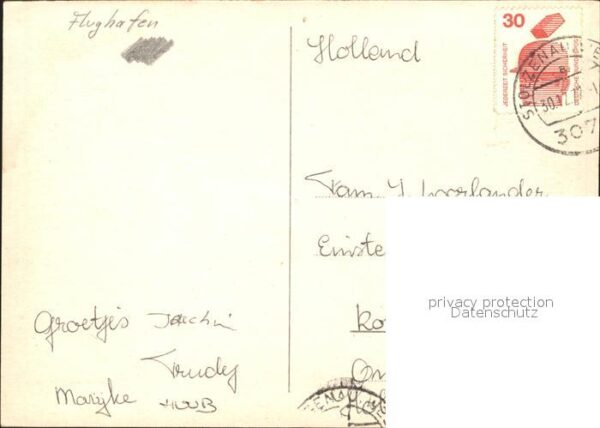 Flughafen
Holland
30
JEDERZEIT SICHERHEIT
DEUTSCHE BUNDESPOST
STOLZENAU
30.12.
307
Fam. J. Voorlander
Einste
privacy protection
Datenschutz
Groetjes Joachim
Trudy
Marijke HUUB